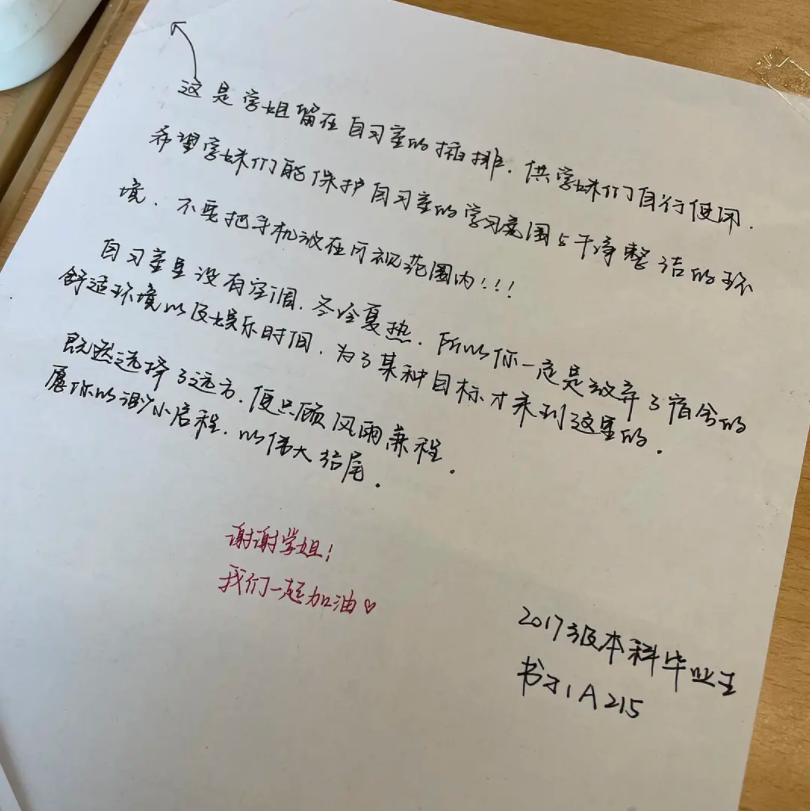 这是学姐留在自习室的插排.供学妹们自行使用.
希望学妹们能保护自习室的学习氛围与干净整洁的环
境.不要把手机放在可视范围内!!!
自习室里没有空调.冬冷夏热.所以你一定是放弃了宿舍的
舒适环境以及娱乐时间.为了某种目标才来到这里的.
既然选择了远方.便只顾风雨兼程.
愿你以渺小启程.以伟大结尾.
谢谢学姐!
我们一起加油♡
2017级本科毕业生
书于1A215